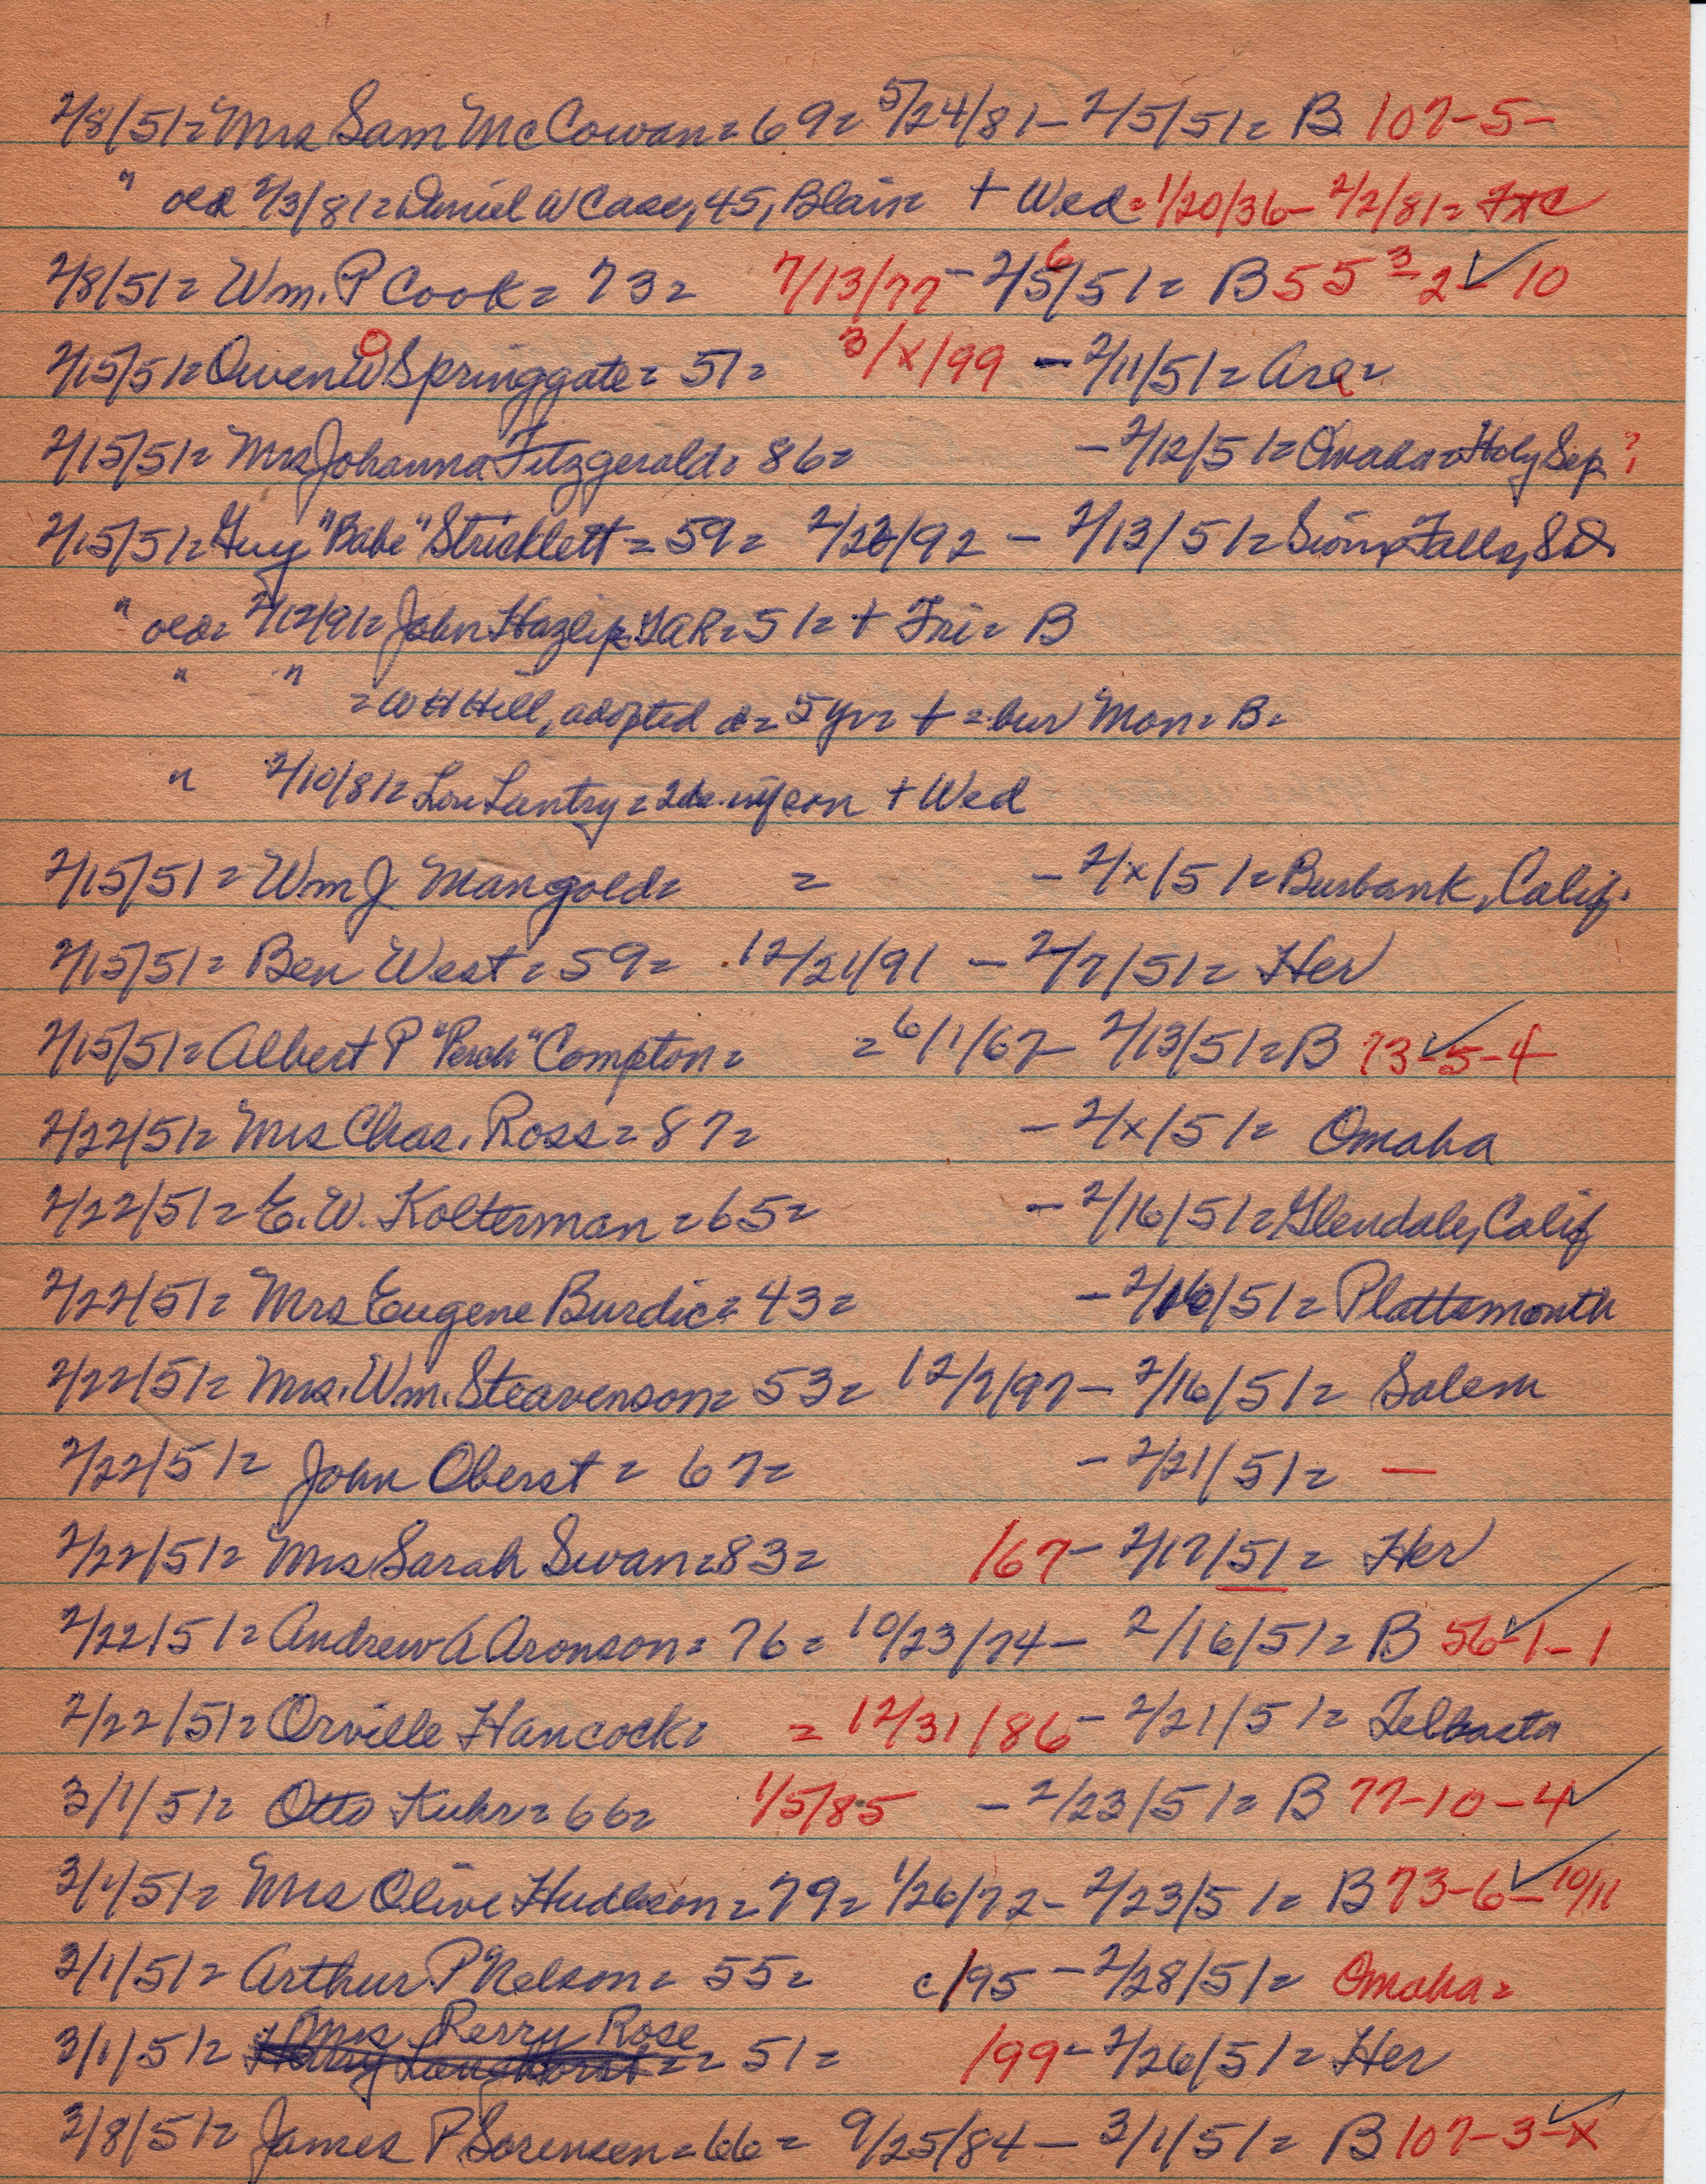 2/8/51= Mrs Sam McCowan= 69= 5/24/81- 2/5/51= B 107-5-
" old 2/3/81= Daniel W Case, 45, Blair + Wed= 1/20/36- 2/2/81=
2/8/51= Wm. P Cook= 73= 7/13/77- 2/5/51= B 55 3-2-10
6
2/15/51= Owen W Springgate= 51= 3/x/99 - 2/11/51= Ara=
O
2/15/51= Mrs Johanna Fitzgerald= 86= - 2/12/51= Omaha= Holy Sep ?
2/15/51= Guy "Babe" Stricklett= 59= 2/23/92 - 2/13/51= Sioux Falls, SD
" old= 2/12/91= John Hazlip, GAR= 51= + Fri= B
" " = W H Hill, adopted d= 5 yr= + = bur Mon= B=
" 2/10/81= Lou Lantry= + Wed
2/15/51= Wm J Mangold= = - 2/x/51= Burbank, Calif.
2/15/51= Ben West= 59= 12/21/91 - 2/7/51= Her
2/15/51= Albert P "Perch" Compton= = 6/1/67- 2/13/51= B 73-5-4
2/22/51= Mrs Chas. Ross= 87= - 2/x/51= Omaha
2/22/51= E. W. Kolterman= 65= - 2/16/51= Glendale, Calif
2/22/51= Mrs Eugene Burdic= 43= - 2/16/51= Plattsmouth
2/22/51= Mrs. Wm. Steavenson= 53= 12/7/97- 2/16/51= Salem
2/22/51= John Oberst= 67= - 2/21/51= —
2/22/51= Mrs Sarah Swan= 83= /67- 2/17/51= Her
2/22/51= Andrew A Aronson= 76= 10/23/74- 2/16/51= B 56-1-1
2/22/51= Orville Hancock= = 12/31/86- 2/21/51= Telbasta
3/1/51= Otto Kuhr= 66= 1/5/85 - 2/23/51= B 77-10-4
3/1/51= Mrs Olive Hudleson= 79= 1/26/72- 2/23/51= B 73-6-10/11
3/1/51= Arthur P Nelson= 55= c/95 - 2/28/51= Omaha=
3/1/51= Mrs Perry Rose = 51= /99- 2/26/51= Her
3/8/51= James P Sorensen= 66= 9/25/84- 3/1/51= B 107-3-x